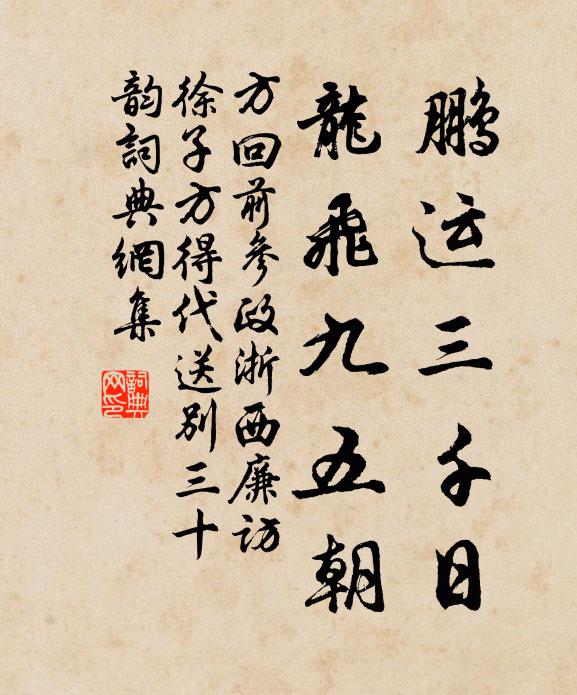 鹏运三千日
龍飛九五朝
方回前參政浙西廉訪
徐子方得代送别三十
韵詞典網集
詞典网印